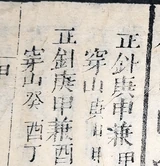 正針庚甲兼甲
穿山庚申甲
正針庚甲兼酉
穿山癸酉丁